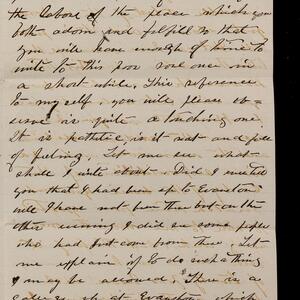 the labors of the place which you
both adorn and fulfill so that
you will have enough of time to
write to this poor rose one in
a short while. This reference
to my self, you will please ob=
serve is quite a touching one.
It is pathetic is it not and full
of feeling. Let me see what
shall I write about. Did I
you that I had been up to Evanston
well I have not been there but on the
other evening I did see some people
who had just come from there. Let
me explain if to do such a thing
I may be allowed. There is a
at Evanston which